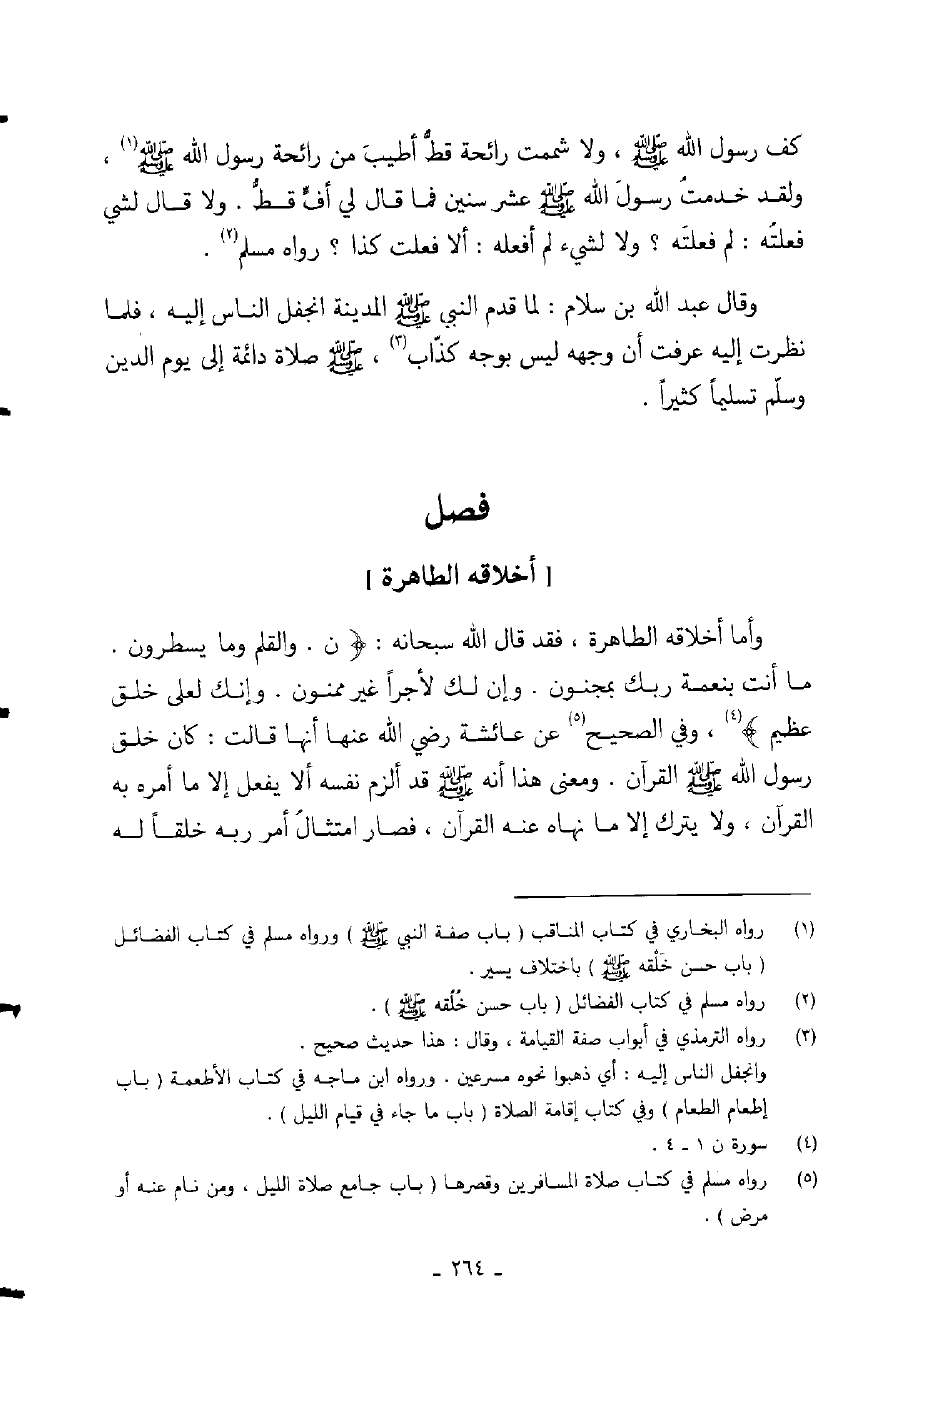 كف رسول الله ﷺ ، ولا شممت رائحة قطُّ أطيبَ من رائحة رسول الله ﷺ(١) ،
ولقـد خـدمتُ رسـولَ الله ﷺ عشر سنين فما قـال لي أفٍّ قـطُّ . ولا قـال لشي
فعلتُه : لم فعلتَه ؟ ولا لشيء لم أفعله : ألا فعلت كذا ؟ رواه مسلم(٢) .
وقال عبد الله بن سلام : لما قدم النبي ﷺ المدينة انجفل النـاس إليـه ، فلمـا
نظرت إليه عرفت أن وجهه ليس بوجه كذّاب(٣) ، ﷺ صلاة دائمة إلى يوم الدين
وسلّم تسليماً كثيراً .
فصل
[ أخلاقه الطاهرة ]
وأما أخلاقه الطاهرة ، فقد قال الله سبحانه : ﴿ ن . والقلم وما يسطرون .
مـا أنت بنعمـة ربـك بمجنـون . وإن لـك لأجراً غير ممنـون . وإنـك لعلى خلـق
عظيم ﴾(٤) ، وفي الصحيـح(٥) عن عـائشـة رضي الله عنهـا أنهـا قـالت : كان خلـق
رسول الله ﷺ القرآن . ومعنى هذا أنه ﷺ قد ألزم نفسه ألا يفعل إلا ما أمره به
القرآن ، ولا يترك إلا مـا نهـاه عنـه القرآن ، فصـار امتثـالُ أمر ربـه خلقـاً لـه
(١) رواه البخـاري في كتـاب المنـاقب ( بـاب صفـة النبي ﷺ ) ورواه مسلم في كتـاب الفضـائـل
( باب حسـن خَلْقه ﷺ ) باختلاف يسير .
(٢) رواه مسلم في كتاب الفضائل ( باب حسن خُلُقه ﷺ ) .
(٣) رواه الترمذي في أبواب صفة القيامة ، وقال : هذا حديث صحيح .
وانجفل الناس إليـه : أي ذهبوا نحوه مسرعين . ورواه ابن مـاجـه في كتـاب الأطعمـة ( بـاب
إطعام الطعام ) وفي كتاب إقامة الصلاة ( باب ما جاء في قيام الليل ) .
(٤) سورة ن ١ ـ ٤ .
(٥) رواه مسلم في كتـاب صلاة المسـافرين وقصرهـا ( بـاب جـامع صلاة الليل ، ومن نـام عنـه أو
مرض ) .
ـ ٢٦٤ ـ